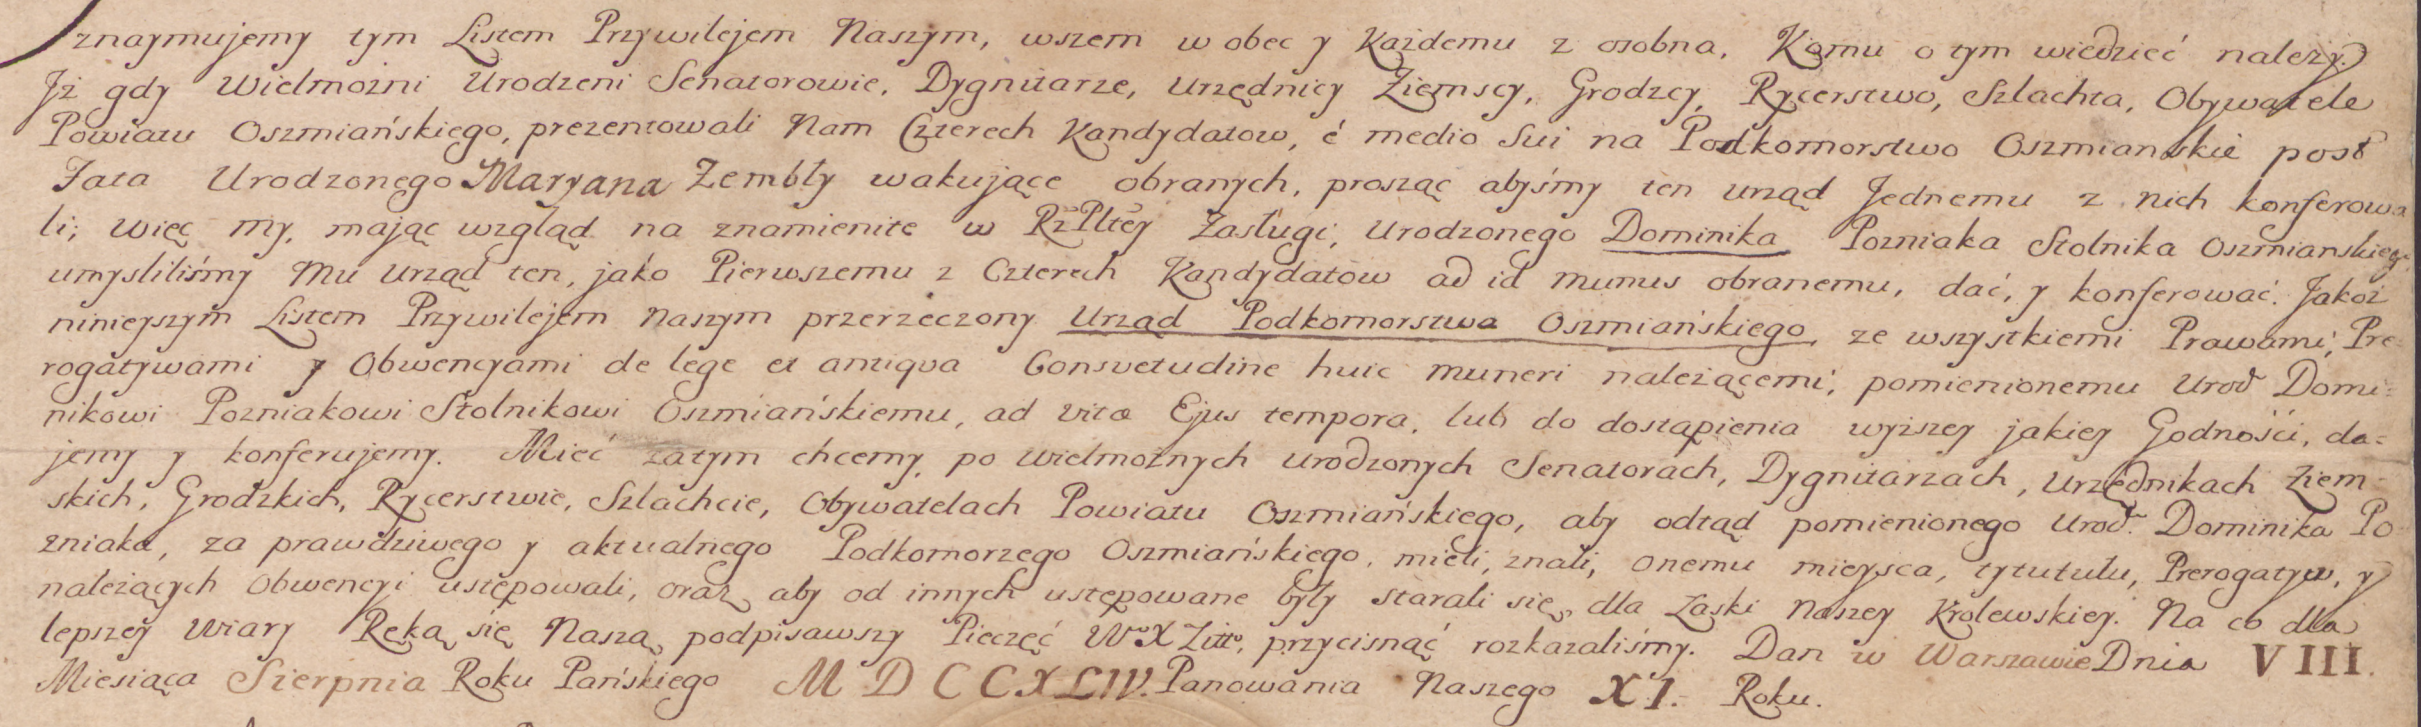 znaymujemy tym Listem Przywilejem Naszym, wszem w obec y Każdemu z osobna, Komu o tym wiedzieć należy.
Jż gdy Wielmożni Urodzeni Senatorowie, Dygnitarze, Urzędnicy Ziemscy, Grodzcy, Rycerstwo, Szlachta, Obywatele
Powiatu Oszmiańskiego, prezentowali Nam Czterech Kandydatow, é medio Sui na Podkomorstwo Oszmianskie post
Fata Urodzonego Maryana Zembły wakujące obranych, prosząc abyśmy ten urząd Jednemu z nich konferowa
li; Więc my, mając wzgląd na znamienite w RzPltey Zasługi, Urodzonego Dominika Pozniaka Stolnika Oszmianskiego
umysliliśmy Mu Urząd ten, jako Pierwszemu z Czterech Kandydatow ad id munus obranemu, dać, y konferować. Jakoż
ninieyszym Listem Przywilejem Naszym przerzeczony Urząd Podkomorstwa Oszmiańskiego, ze wszystkiemi Prawami, Pre-
rogatywami y Obwencyami de lege et antiqva Consvetudine huic muneri należącemi, pomienionemu Urod Domi-
nikowi Pozniakowi Stolnikowi Oszmiańskiemu, ad vitæ Ejus tempora, lub do dostąpienia wyższey jakiey Godności, da-
jemy y konferujemy. Mieć zatym chcemy, po Wielmożnych Urodzonych Senatorach, Dygnitarzach, Urzędnikach Ziem-
skich, Grodzkich, Rycerstwie, Szlachcie, Obywatelach Powiatu Oszmiańskiego, aby odtąd pomienionego Urod. Dominika Po
zniaka, za prawdziwego y aktualnego Podkomorzego Oszmiańskiego, mieli, znali, onemu mieysca, tytutułu, Prerogatyw, y
należących Obwencyi ustępowali, oraz aby od innych ustępowane były starali się, dla Łaski Naszey Krolewskiey. Na co dla
lepszey Wiary Ręką się Naszą podpisawszy Pieczęć W X Litt. przycisnąć rozkazaliśmy. Dan w Warszawie Dnia VIII.
Miesiąca Sierpnia Roku Pańskiego MDCCXLIV. Panowania Naszego XI. Roku.